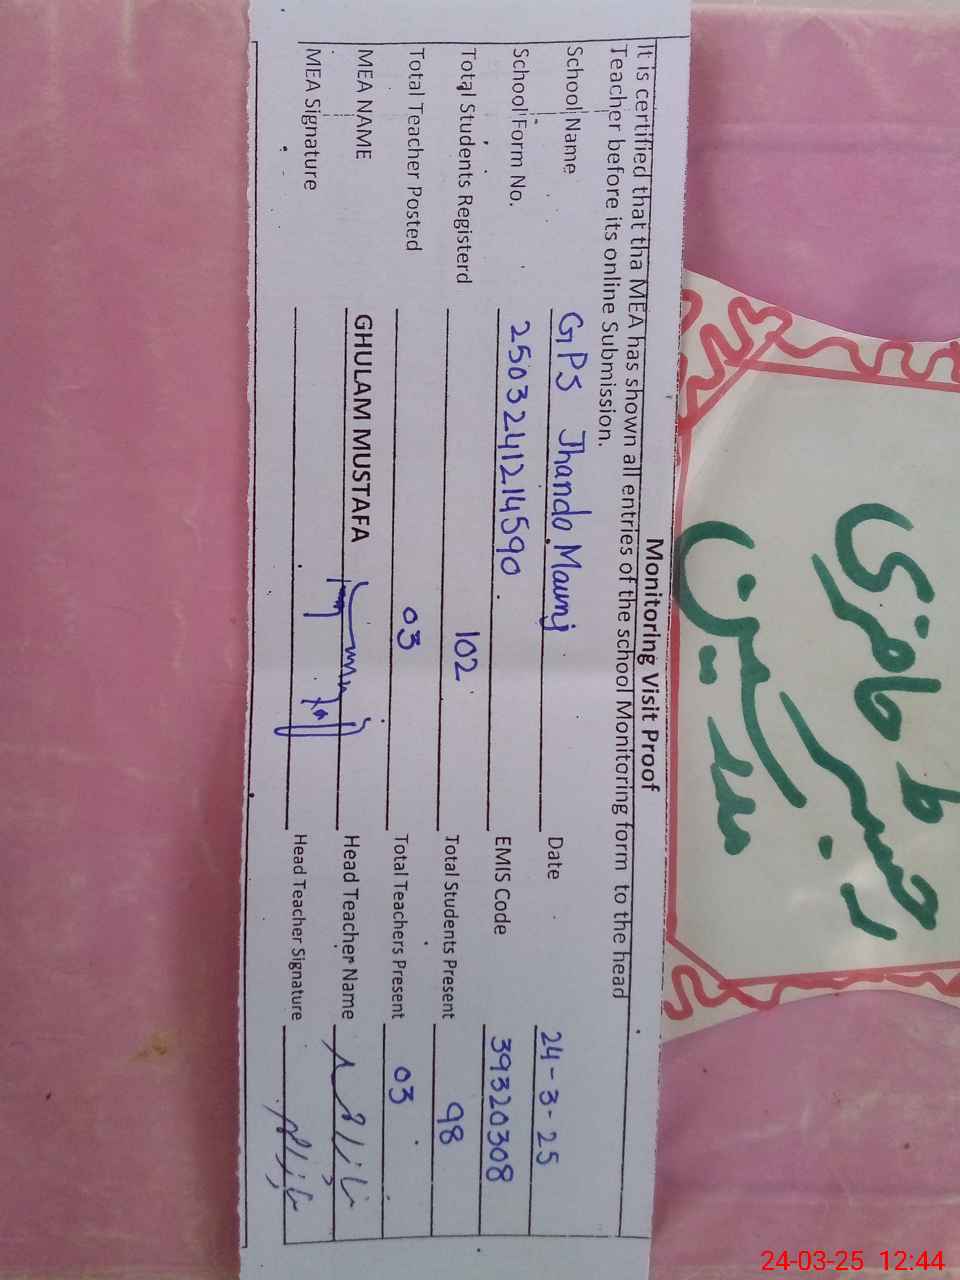 Monitoring Visit Proof
It is certified that tha MEA has shown all entries of the school Monitoring form to the head
Teacher before its online Submission.
School Name GPS Jhando Maunj Date 24-3-25
School Form No. 2503241214590 EMIS Code 39320308
Total Students Registerd 102 Total Students Present 98
Total Teacher Posted 03 Total Teachers Present 03
MEA NAME GHULAM MUSTAFA Head Teacher Name
MEA Signature Head Teacher Signature
رجسٹر حاضری
مدرسین
24-03-25 12:44